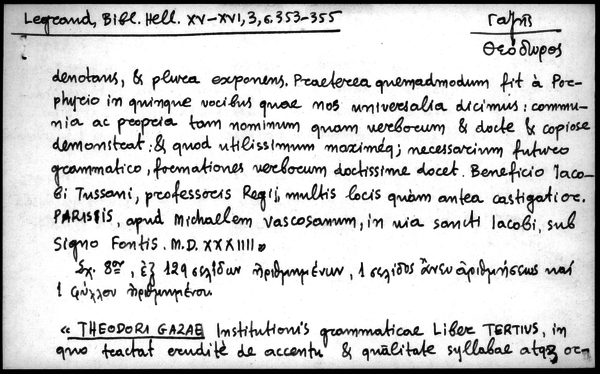 Legrand, Bibl. Hell. XV-XVI, 3, σ. 353-355
Γαζῆς
Θεόδωρος
denotans, & plura exponens. Praeterea quemadmodum fit à Por-
phyrio in quinque vocibus quae nos universalia dicimus: commu-
nia ac propria tam nominum quam verborum & docte & copiose
demonstrat: & quod utilissimum maximéq; necessarium futuro
grammatico, formationes verborum doctissime docet. Beneficio Iaco-
bi Tussani, professoris Regij, multis locis quàm antea castigatior.
PARISIIS, apud Michaelem Vascosanum, in via sancti Iacobi, sub
Signo Fontis. M.D.XXXIIII»
Σχ. 8ον, ἐξ 129 σελίδων ἠριθμημένων, 1 σελίδος ἄνευ ἀριθμήσεως καὶ
1 φύλλου ἠριθμημένου
« THEODORI GAZAE Institutionis grammaticae Liber TERTIUS, in
quo tractat eruditè de accentu & quālitate syllabae atqȝ or-